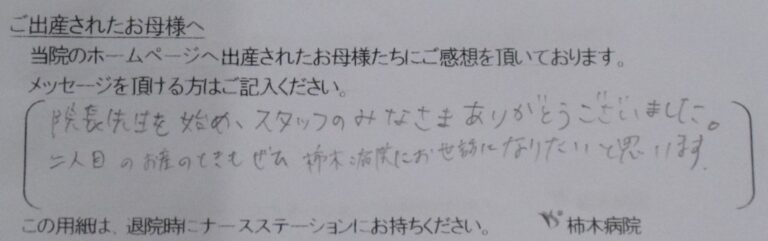 ご出産されたお母様へ
当院のホームページへ出産されたお母様たちにご感想を頂いております。
メッセージを頂ける方はご記入ください。
院長先生を始め、スタッフのみなさまありがとうございました。
二人目のお産のときもぜひ柿木病院にお世話になりたいと思います。
この用紙は、退院時にナースステーションにお持ちください。 柿木病院